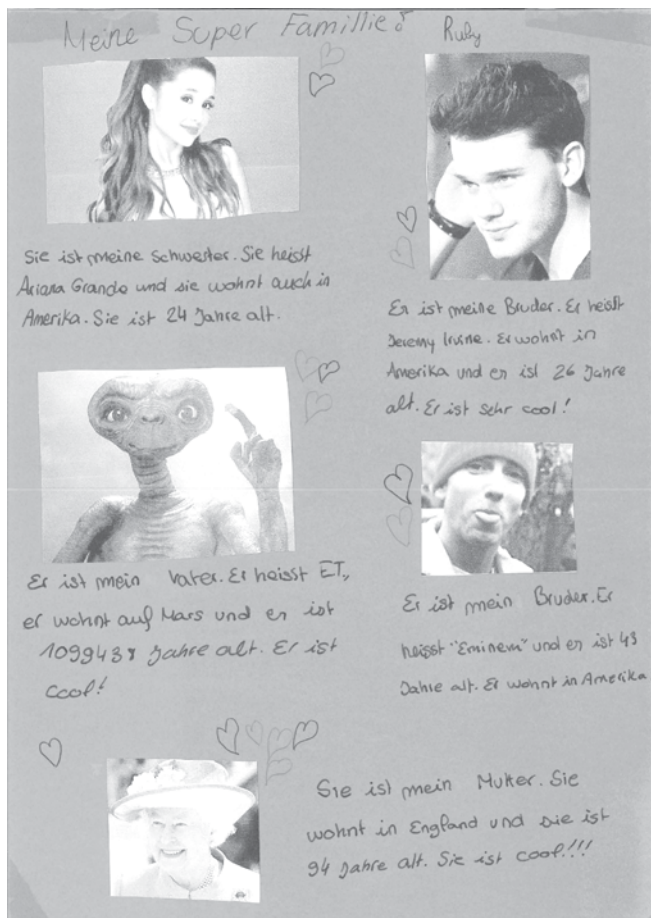 Meine Super Famillie!
Ruby
Sie ist meine Schwester. Sie heisst
Ariana Grande und sie wohnt auch in
Amerika. Sie ist 24 Jahre alt.
Er ist meine Bruder. Er heisst
Jeremy Irvine. Er wohnt in
Amerika und er ist 26 Jahre
alt. Er ist sehr cool!
Er ist mein Vater. Er heisst ET,
er wohnt auf Mars und er ist
Jahre alt. Er ist
cool!
Er ist mein Bruder. Er
heisst "Eminem" und er ist 43
Jahre alt. Er wohnt in Amerika
Sie ist mein Mutter. Sie
wohnt in England und sie ist
94 Jahre alt. Sie ist cool!!!